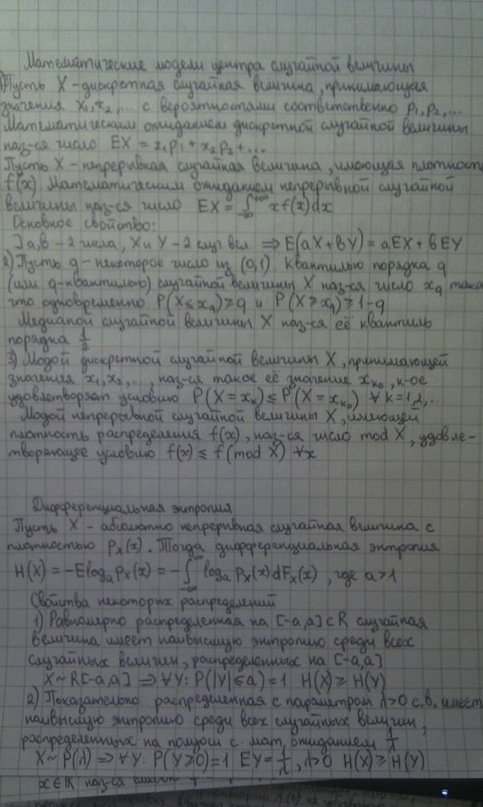 Математические модели центра случайной величины
1) Пусть X - дискретная случайная величина, принимающая
значения x₁, x₂, ... с вероятностями соответственно p₁, p₂, ...
Математическим ожиданием дискретной случайной величины
наз-ся число EX = x₁p₁ + x₂p₂ + ...
Пусть X - непрерывная случайная величина, имеющая плотность
f(x). Математическим ожиданием непрерывной случайной
величины наз-ся число EX = ∫_{-∞}^{+∞} x f(x)dx
Основное свойство:
] a, b - 2 числа, X и Y - 2 случ вел ⇒ E(aX + bY) = aEX + bEY
2) Пусть q - некоторое число из (0,1). Квантилью порядка q
(или q-квантилью) случайной величины X наз-ся число x_q такое
что одновременно P(X ≤ x_q) ≥ q и P(X ≥ x_q) ≥ 1-q
Медианой случайной величины X наз-ся её квантиль
порядка 1/2
3) Модой дискретной случайной величины X, принимающей
значения x₁, x₂, ..., наз-ся такое её значение x_{k₀}, к-ое
удовлетворяет условию P(X = x_k) ≤ P(X = x_{k₀}) ∀ k = 1,2,...
Модой непрерывной случайной величины X, имеющей
плотность распределения f(x), наз-ся число mod X, удовле-
творяющее условию f(x) ≤ f(mod X) ∀x
Дифференциальная энтропия
Пусть X - абсолютно непрерывная случайная величина с
плотностью p_X(x). Тогда дифференциальная энтропия
H(X) = -E log_a p_X(x) = -∫_{-∞}^{∞} log_a p_X(x) dF_X(x), где a > 1
Свойства некоторых распределений
1) Равномерно распределенная на [-a, a] ⊂ R случайная
величина имеет наивысшую энтропию среди всех
случайных величин, распределенных на [-a, a]
X ~ R[-a, a] ⇒ ∀Y: P(|Y| ≤ a) = 1 H(X) ≥ H(Y)
2) Показательно распределенная с параметром λ>0 с.в. имеет
наивысшую энтропию среди всех случайных величин,
распределенных на полуоси с мат. ожиданием 1/λ
X ~ P(λ) ⇒ ∀Y: P(Y ≥ 0) = 1 EY = 1/λ, λ > 0 H(X) ≥ H(Y)
x ∈ R наз-ся